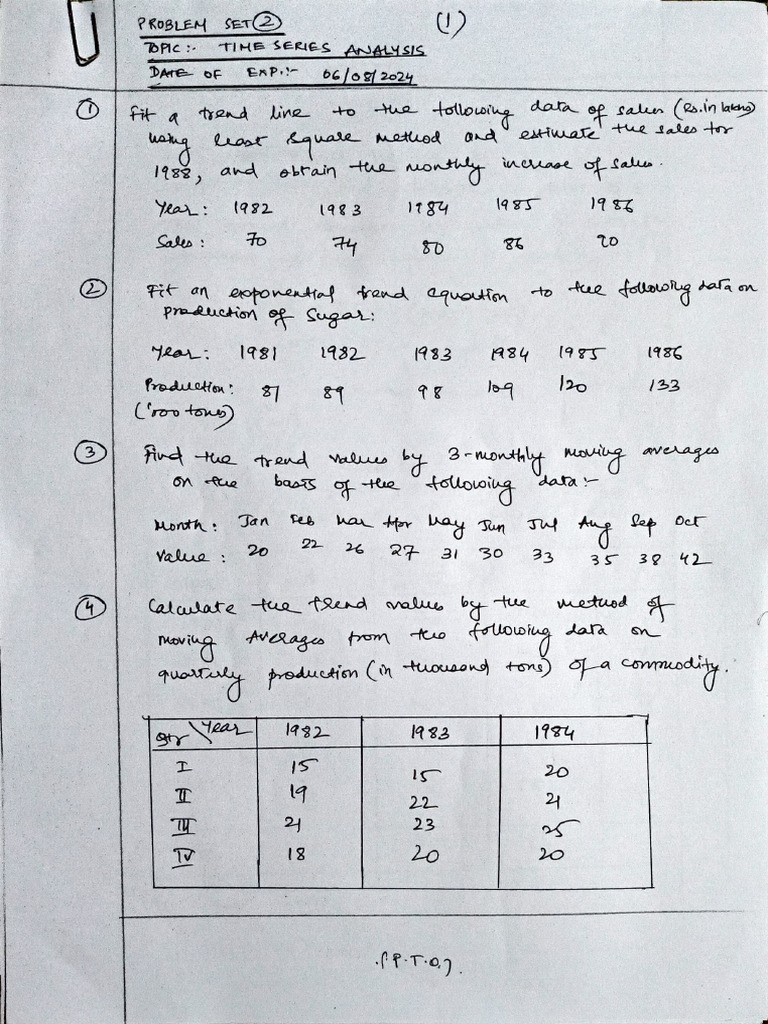 PROBLEM SET 2 (1)
TOPIC:- TIME SERIES ANALYSIS
DATE OF EXP.:- 06/08/2024
1 Fit a trend line to the following data of sales (Rs. in lakhs)
using least square method and estimate the sales for
1988, and obtain the monthly increase of sales.
Year: 1982 1983 1984 1985 1986
Sales: 70 74 80 86 90
2 Fit an exponential trend equation to the following data on
production of Sugar:
Year: 1981 1982 1983 1984 1985 1986
Production: 87 89 98 109 120 133
('000 tones)
3 Find the trend values by 3-monthly moving averages
on the basis of the following data:-
Month: Jan Feb Mar Apr May Jun Jul Aug Sep Oct
Value: 20 22 26 27 31 30 33 35 38 42
4 Calculate the trend values by the method of
moving Averages from the following data on
quarterly production (in thousand tons) of a commodity.
Qtr \ Year 1982 1983 1984
I 15 15 20
II 19 22 21
III 21 23 25
IV 18 20 20
(P.T.O)